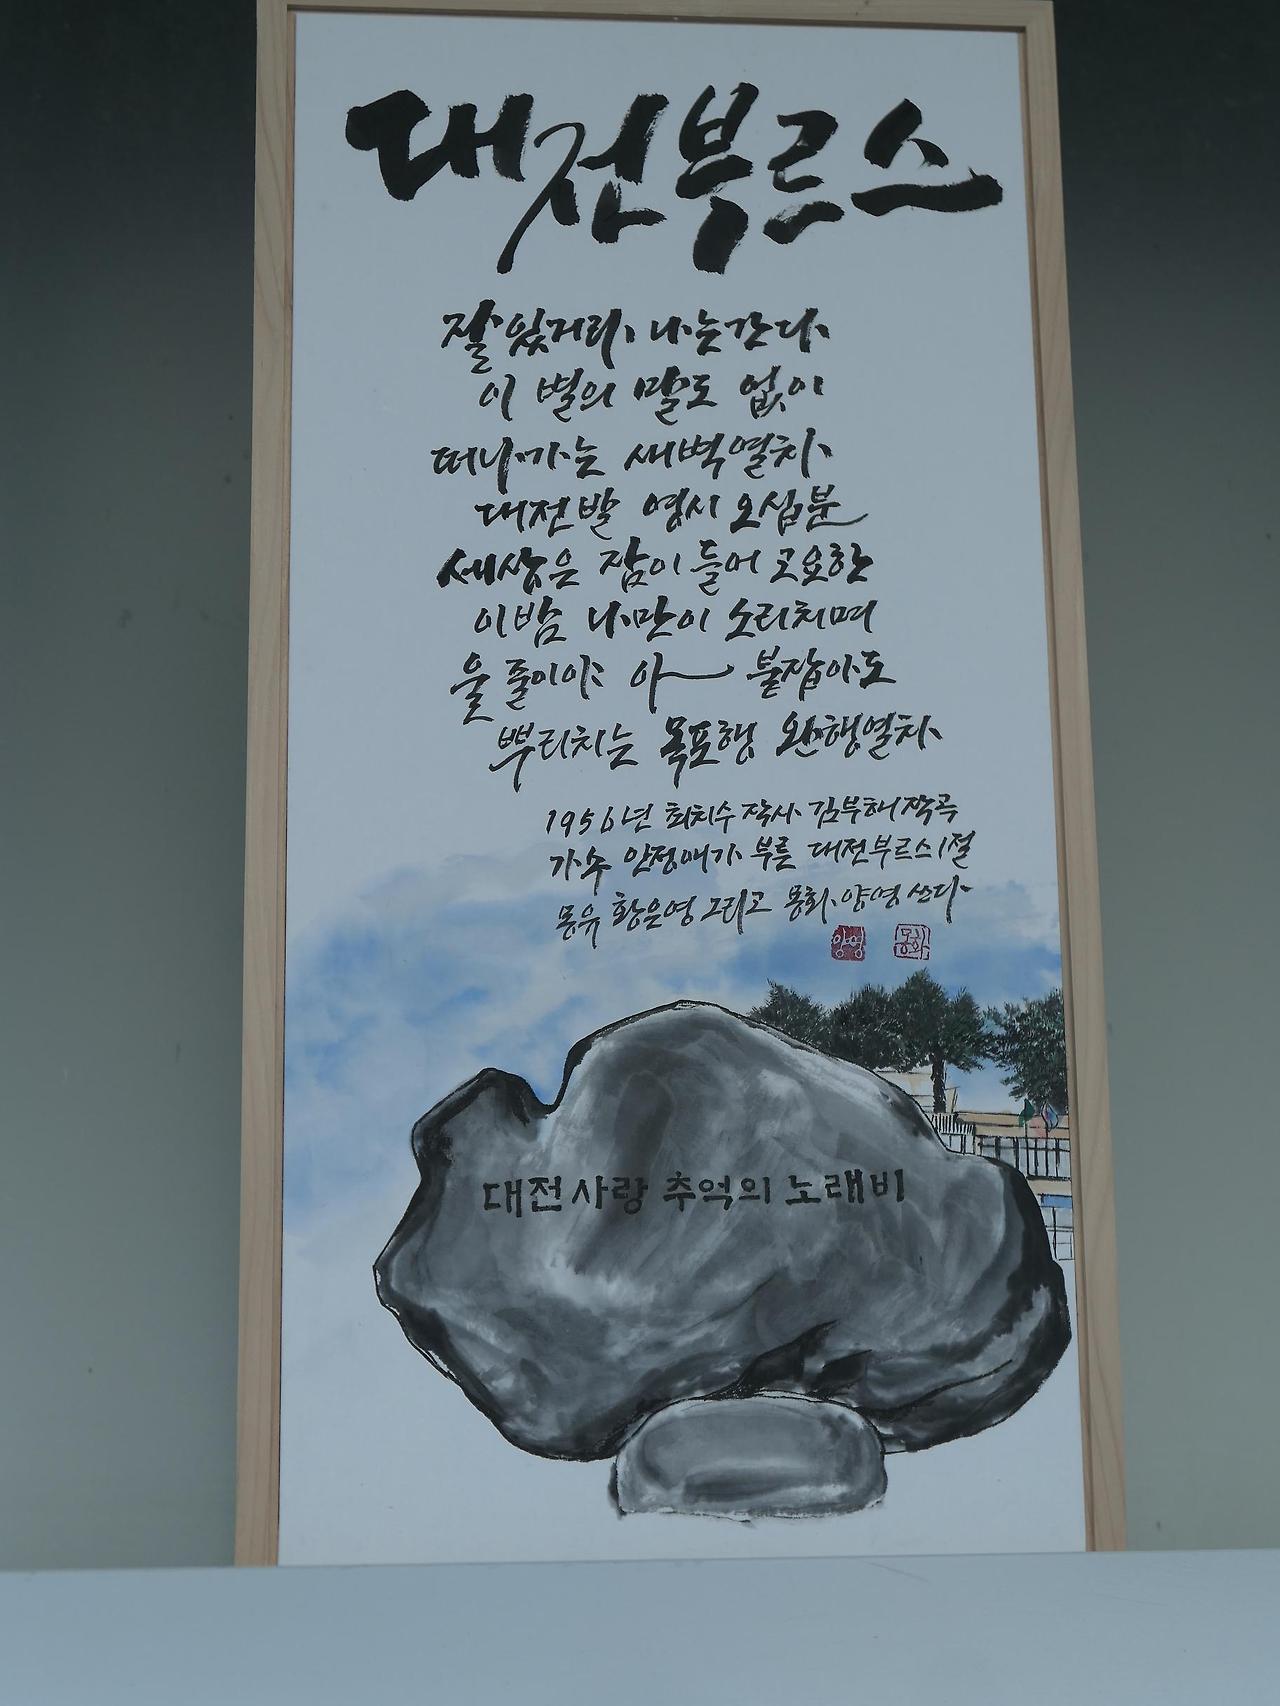 대전부르스
잘있거라 나는간다
이별의 말도 없이
떠나가는 새벽열차
대전발 영시 오십분
세상은 잠이 들어 고요한
이밤 나만이 소리치며
울 줄이야 아~ 붙잡아도
뿌리치는 목포행 완행열차
1956년 최치수 작사 김부해 작곡
가수 안정애가 부른 대전부르스 1절
몽유 황은영 그리고 몽화 양영 쓰다
양영 몽화
대전사랑 추억의 노래비